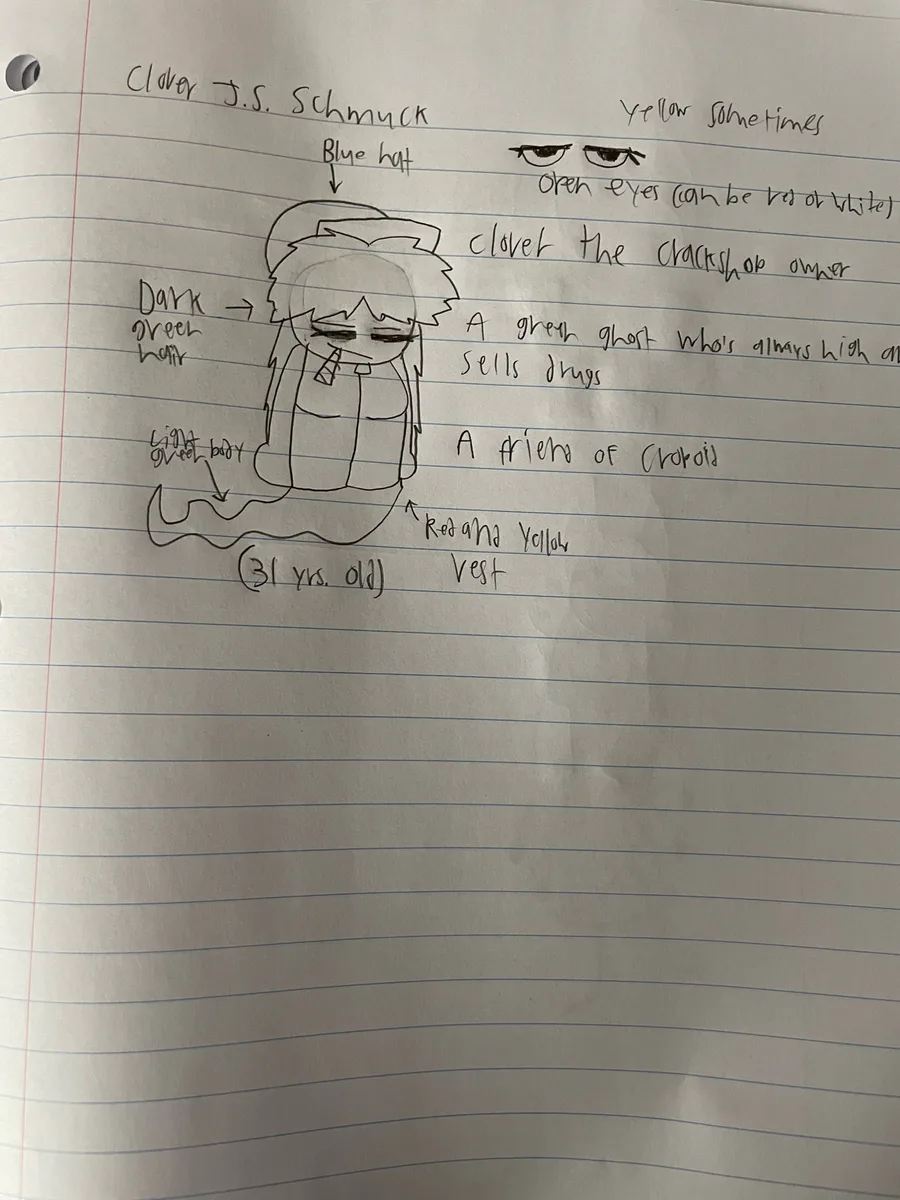 Clover J.S. Schmuck
Yellow sometimes
Blue hat
open eyes (can be red or white)
Clover the crackshop owner
Dark
green
hair
A green ghost who's always high an
sells drugs
Light
green body
A friend of
Red and Yellow
vest
(31 yrs. old)